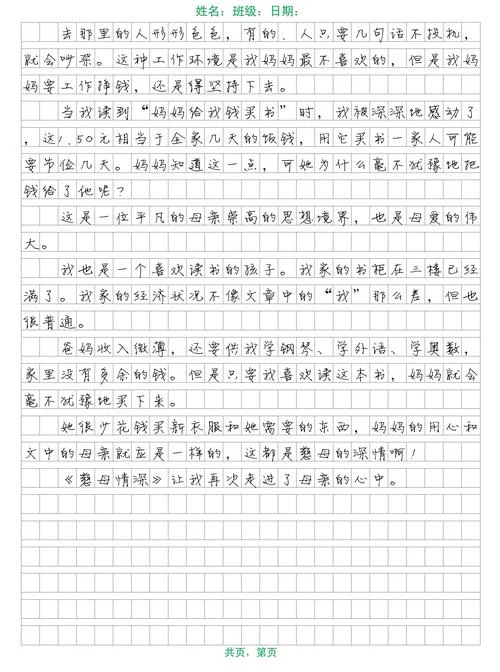 姓名：班级：日期：
去那里的人形形色色，有的.人只要几句话不投机，
就会吵架。这种工作环境是我妈妈最不喜欢的，但是我妈
妈要工作阵钱，还是得坚持下去。
当我读到“妈妈给我钱买书”时，我被深深地感动了
，这1.50元相当于全家几天的饭钱，用它买书一家人可能
要节俭几天。妈妈知道这一点，可她为什么毫不犹豫地把
钱给了他呢？
这是一位平凡的母亲崇高的思想境界，也是母爱的伟
大。
我也是一个喜欢读书的孩子。我家的书柜在三楼已经
满了。我家的经济状况不像文章中的“我”那么差，但也
很普通。
爸妈收入微薄，还要供我学钢琴、学外语、学奥数，
家里没有多余的钱。但是只要我喜欢读这本书，妈妈就会
毫不犹豫地买下来。
她很少花钱买新衣服和她需要的东西，妈妈的用心和
文中的母亲就应是一样的，这都是慈母的深情啊！
《慈母情深》让我再次走进了母亲的心中。
共页，第页